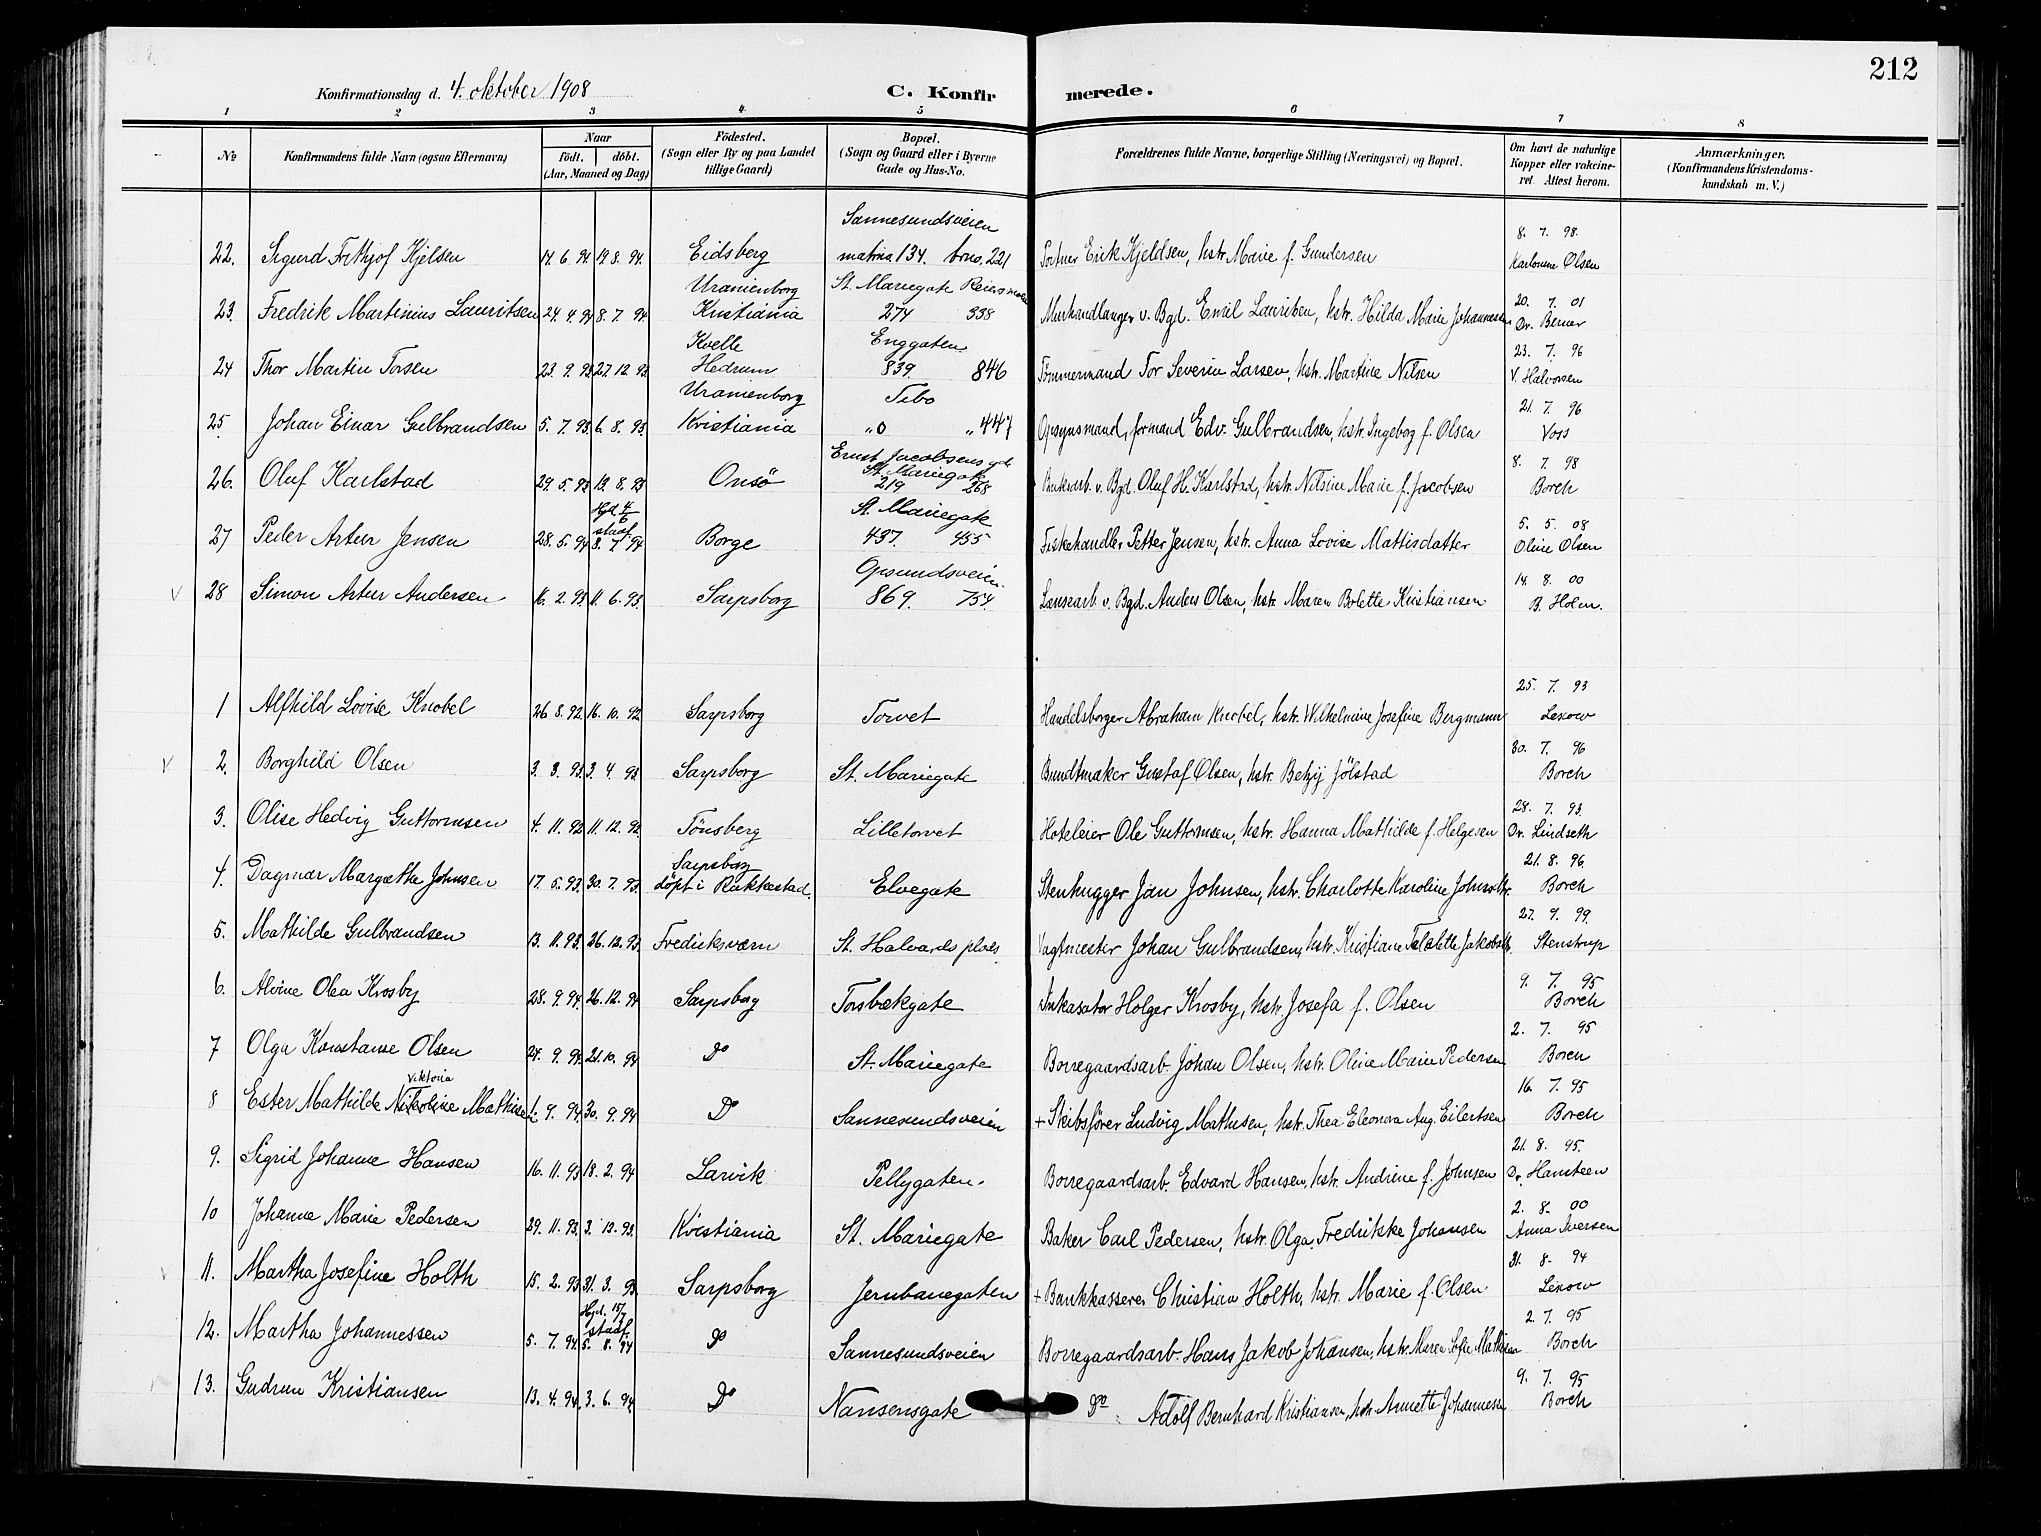 212
Konfirmationsdag d. 4. oktober 1908 C. Konfirmerede.
1 2 3 4 5 6 7 8
No Konfirmandens fulde Navn (ogsaa Efternavn) Naar födt. döbt. (Aar, Maaned og Dag) Födested. (Sogn eller By og paa Landet tillige Gaard) Bopæl. (Sogn og Gaard eller i Byerne Gade og Hus-No. Forældrenes fulde Navne, borgerlige Stilling (Næringsvei) og Bopæl. Om havt de naturlige Kopper eller vaccineret. Attest herom. Anmærkninger. (Konfirmandens Kristendomskundskab m. V.)
Sannesundsveien 8. 7. 98.
22. Sigurd Frithjof Kjelsen 14. 6. 94. 19. 8. 94. Eidsberg matrna 134. brno. 221 Portner Erik Kjeldsen, hstr. Marie f. Gundersen Karlonine Olsen
Uranienborg St. Mariegate 20. 7. 01
23. Fredrik Martinius Lauritsen 24. 4. 94 8. 7. 94. Kristiania 274 338 Murhandlanger v. Bgd. Emil Lauritsen, hstr. Hilda Marie Johannessen Dr. Berner
Kvelle Enggaten 23. 7. 96
24 Thor Martin Torsen 23. 9. 93 27. 12. 93 Hedrum 839. 846 Tömmermand Tor Severin Larsen, hstr. Martine Nilsen V. Halvorsen
Uranienborg Tibo 21. 7. 96
25. Johan Einar Gulbrandsen 5. 7. 93. 6. 8. 93. Kristiania "0 "447 Opsynsmand, formand Edv. Gulbrandsen, hstr. Ingeborg f. Olsen Voss
Ernst Jacobsens gt. St. Mariegate 8. 7. 98
26. Oluf Karlstad 29. 5. 93 13. 8. 93 Onsö 219 268 Bruksarb. v. Bgd. Oluf H. Karlstad, hstr. Nilsine Marie f. Jacobsen Borch
Hjd. 4/6 stadf. St. Mariegate 5. 5. 08
27 Peder Artur Jensen 28. 5. 94 8. 7. 94 Borge 437. 455 Fiskehandler Petter Jensen, hstr. Anna Lovise Mattisdatter Oline Olsen
Opsundsveien 14. 8. 00
V 28 Simon Artur Andersen 16. 2. 93 11. 6. 93. Sarpsborg 869. 754. Lænsearb. v. Bgd. Anders Olsen, hstr. Maren Bolette Kristiansen B. Holm.
25. 7. 93
1 Alfhild Lovise Knobel 26. 8. 92. 16. 10. 92 Sarpsborg Torvet Handelsborger Abraham Knobel, hstr. Wilhelmine Josefine Bergmann Lexow
30. 7. 96
V 2. Borghild Olsen 3. 3. 93. 3. 4. 93 Sarpsborg St. Mariegate Bundtmaker Gustaf Olsen, hstr. Betzy Jölstad Borch
28. 7. 93.
3. Olise Hedvig Guttormsen 4. 11. 92 11. 12. 92. Tönsberg Lilletorvet Hoteleier Ole Guttormsen, hstr. Hanna Mathilde f. Helgesen Dr. Lindseth
Sarpsborg 21. 8. 96.
4. Dagmar Margethe Johnsen 17. 5. 93. 30. 7. 93. döpt i Rakkestad. Elvegate Stenhugger Jan Johnsen, hstr. Charlotte Karoline Johnsdtr. Borch
27. 9. 99.
5. Mathilde Gulbrandsen 13. 11. 93. 26. 12. 93. Fredriksværn St. Halvards plads. Vagtmester Johan Gulbrandsen, hstr. Kristiane Jakobsdtr. Stenstrup
9. 7. 95
6. Alvine Olea Krosby 28. 9. 94. 26. 12. 94 Sarpsborg Torsbækgate Inkasator Holger Krosby, hstr. Josefa f. Olsen Borch
2. 7. 95
7 Olga Konstanse Olsen 24. 9. 94. 21. 10. 94 Do St. Mariegate Borregaardsarb. Johan Olsen, hstr. Oline Marie Pedersen Borch
Viktoria 16. 7. 95
8 Ester Mathilde Nikoline Mathisen 1. 9. 94. 30. 9. 94 Do Sannesundsveien + Skibsförer Ludvig Mathisen, hstr. Thea Eleonora Aug. Eilertsen Borch
21. 8. 95.
9. Sigrid Johanne Hansen 16. 11. 93 18. 2. 94 Larvik Pellygaten. Borregaardsarb. Edvard Hansen, hstr. Andrine f. Johnsen Dr. Hansteen
2. 8. 00
10 Johanne Marie Pedersen 29. 11. 93. 3. 12. 93. Kristiania St. Mariegate Baker Carl Pedersen, hstr. Olga. Fredrikke Johansen Anna Iversen
31. 8. 94
V 11. Martha Josefine Holth 15. 2. 93 31. 3. 93. Sarpsborg Jernbanegaten + Bankkasserer Christian Holth, hstr. Marie f. Olsen Lexow
Hjd. 15/7 stadf. 2. 7. 95
12. Martha Johannessen 5. 7. 94. 5. 8. 94 Do Sannesundsveien Borregaardsarb. Hans Jakob Johansen, hstr. Maren Sofie Mathisen Borch
9. 7. 95
13. Gudrun Kristiansen 13. 4. 94. 3. 6. 94 Do Nansensgate Do Adolf Bernhard Kristiansen, hstr. Annette Johannesen Borch